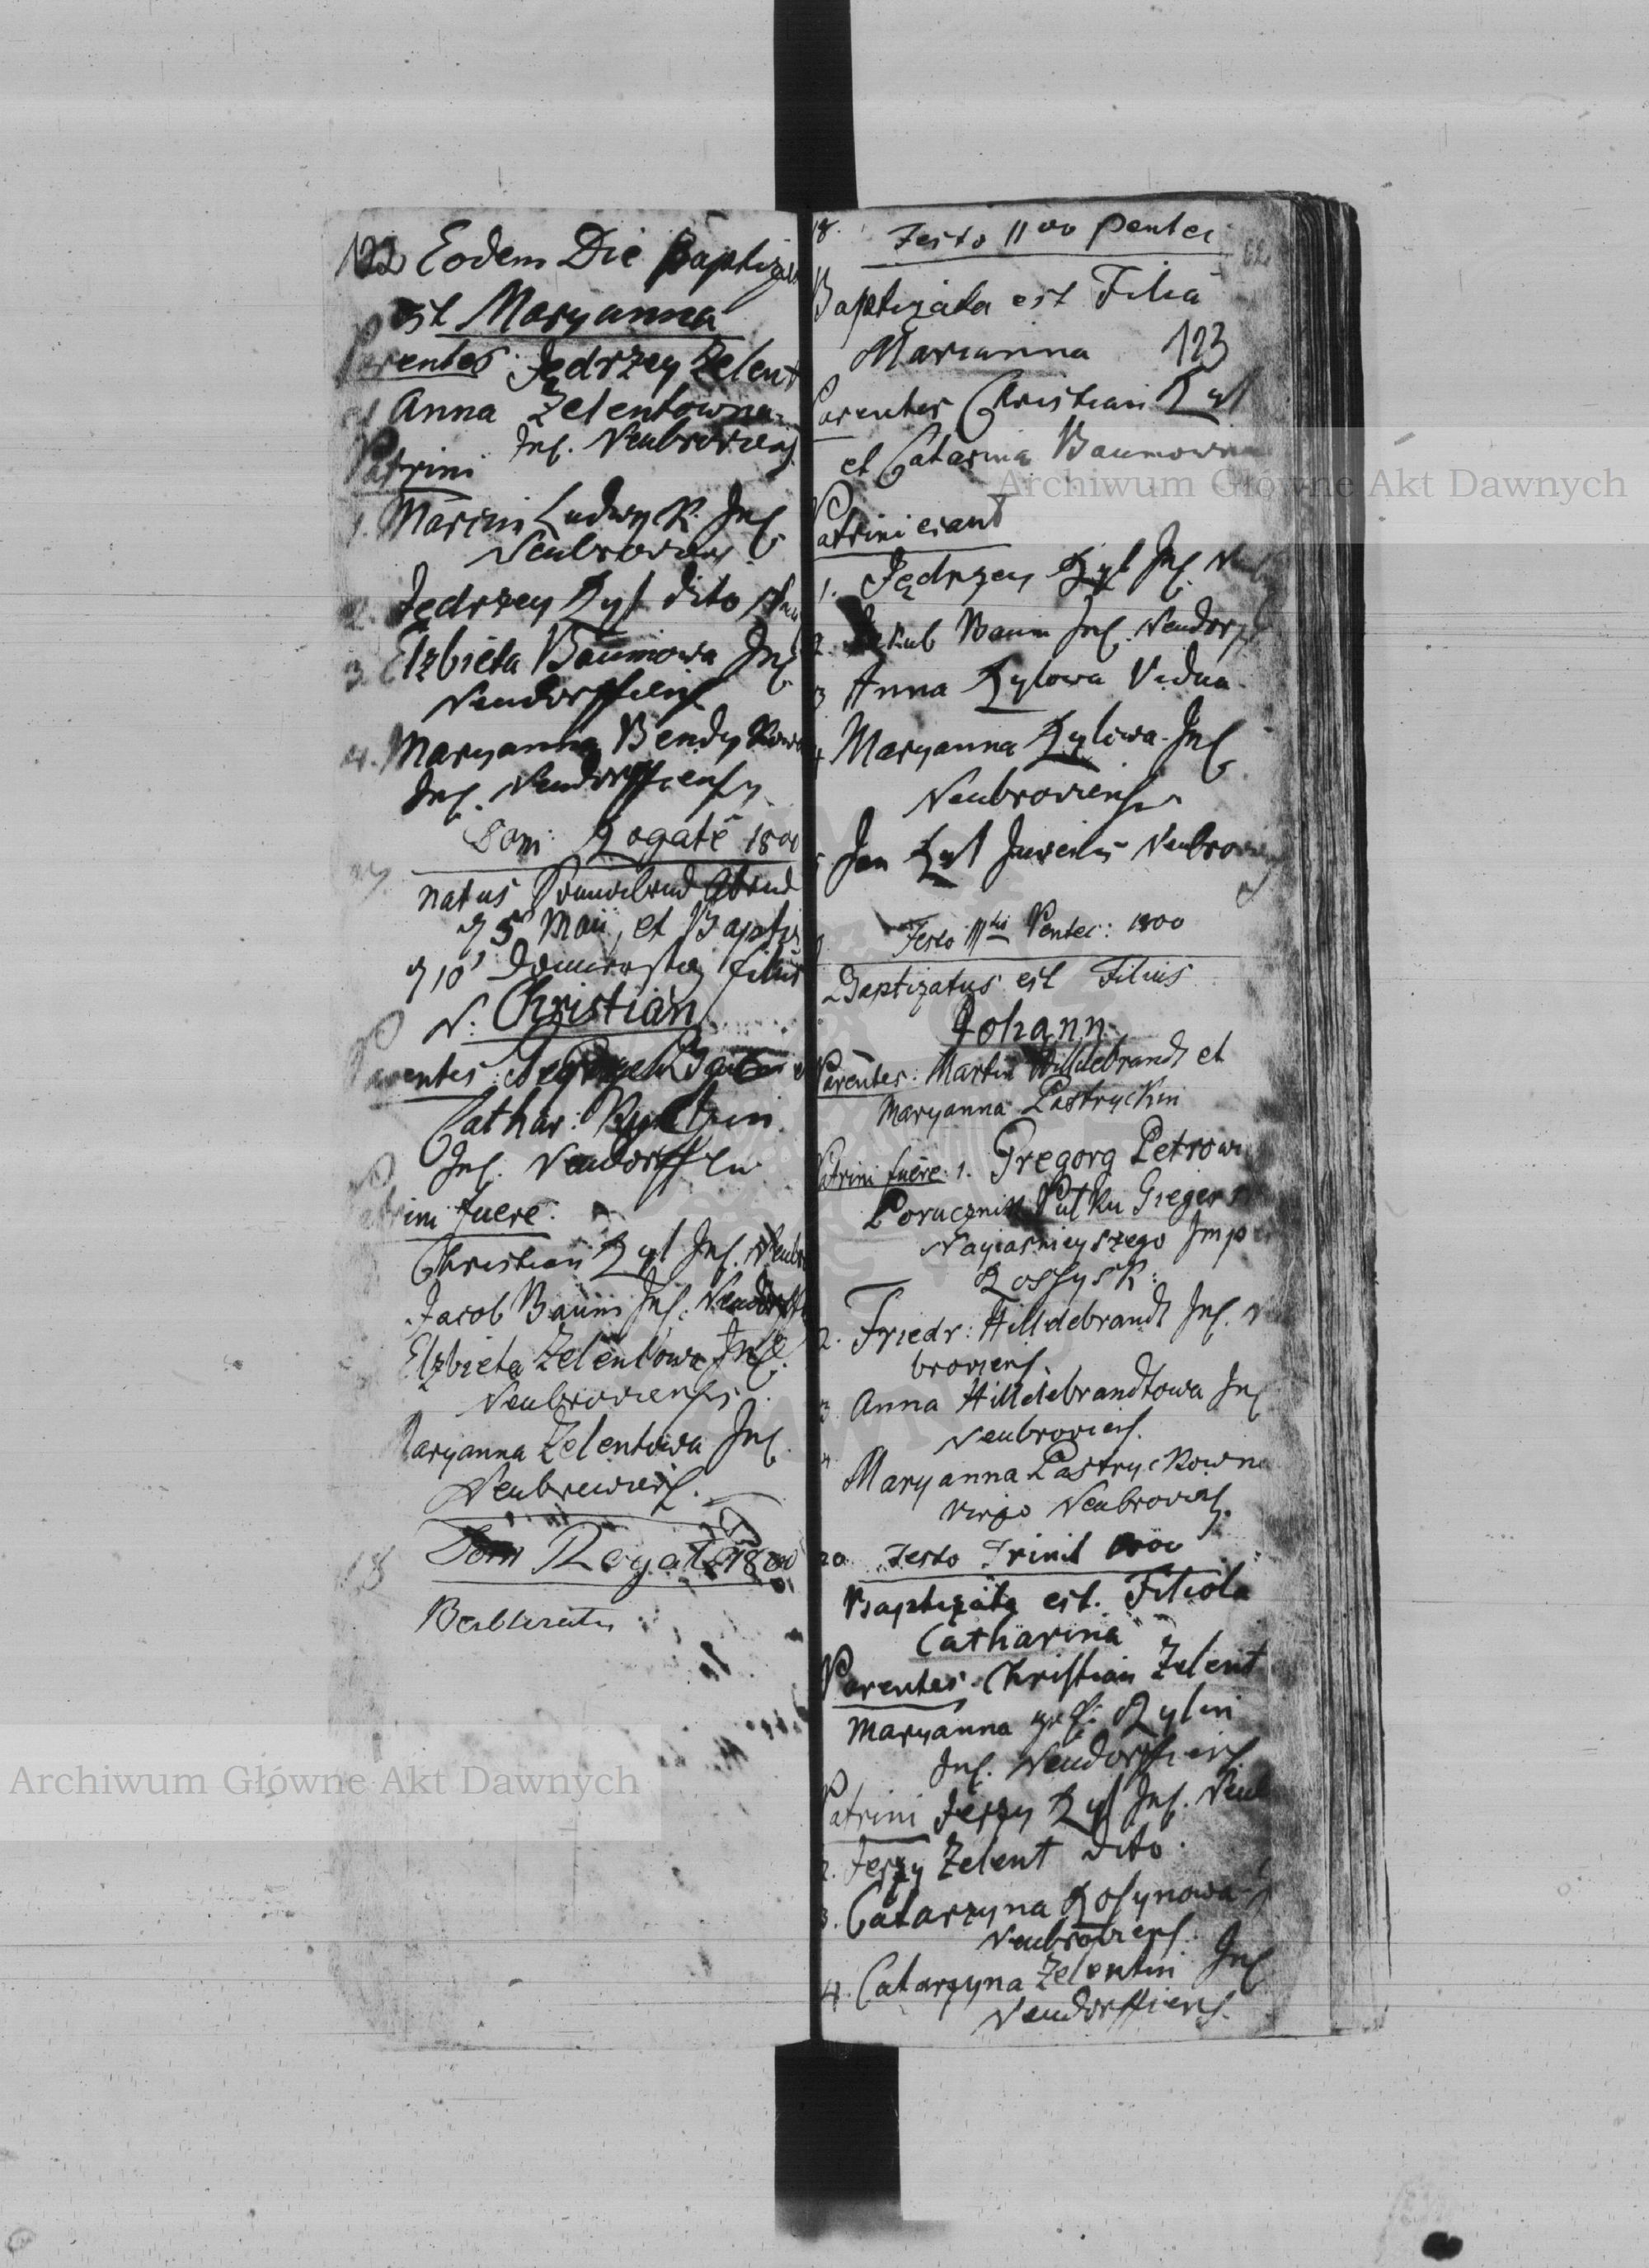 122 Eodem Die Baptizata
est Maryanna
Parentes Jędrzey Zelent
et Anna Zelentowna
Inc. Neubroviens
Patrini
1. Marcin Ludwyk Inc
Neubroviens
2. Jędrzey Ryl dito
3. Elzbieta Baumowa Inc
Neudorffiens
4. Maryanna Bendykowa
Inc. Neudorffiensis
Dom: Rogate 1800
natus
d 5 Maii, et Baptis
d 10 filius
N: Christian
Parentes
Cathar:
Inc. Neudorffien
Patrini fuere
Christian Ryl Inc. Neubr
Jacob Baum Inc. Neudorff
Elzbieta Zelentowa Inc.
Neubroviensis
Maryanna Zelentowa Inc.
Neubroviens.
18 Dom Rogate 1800
18. Festo II Pentec
Baptizata est Filia
Marianna 123
Parentes Christian Ryl
et Catarina Baumowna
Patrini erant
1. Jędrzey Ryl Inc. Neub
2. Jakub Baum Inc. Neudorff
3 Anna Rylowa Vidua
4 Maryanna Rylowa Inc
Neubroviensis
5 Jan Ryl Juvenis Neubroviens
Festo III Pentec: 1800
Baptizatus est Filius
Johann
Parentes: Martin Hilldebrandt et
Maryanna Pastryckin
Patrini fuere: 1. Gregorg Petrow
Porucznik Pułku Gieger
Nayiasnieyszego Imp
Rossysk:
2. Friedr: Hilldebrandt Inc. N
broviens.
3 Anna Hilldebrandtowa Inc
Neubroviens.
4 Maryanna Pastryckowna
virgo Neubroviens.
20 Festo Trinit 1800
Baptizata est. Filiola
Catharina
Parentes Christian Zelent
Maryanna Rylin
Inc. Neudorffiens
Patrini Jerzy Ryl Inc. Neub
2. Jerzy Zelent dito
3. Catarzyna Rosynowa
Neubroviens.
4. Catarzyna Zelentin Inc
Neudorffiens.
Archiwum Główne Akt Dawnych
Archiwum Główne Akt Dawnych